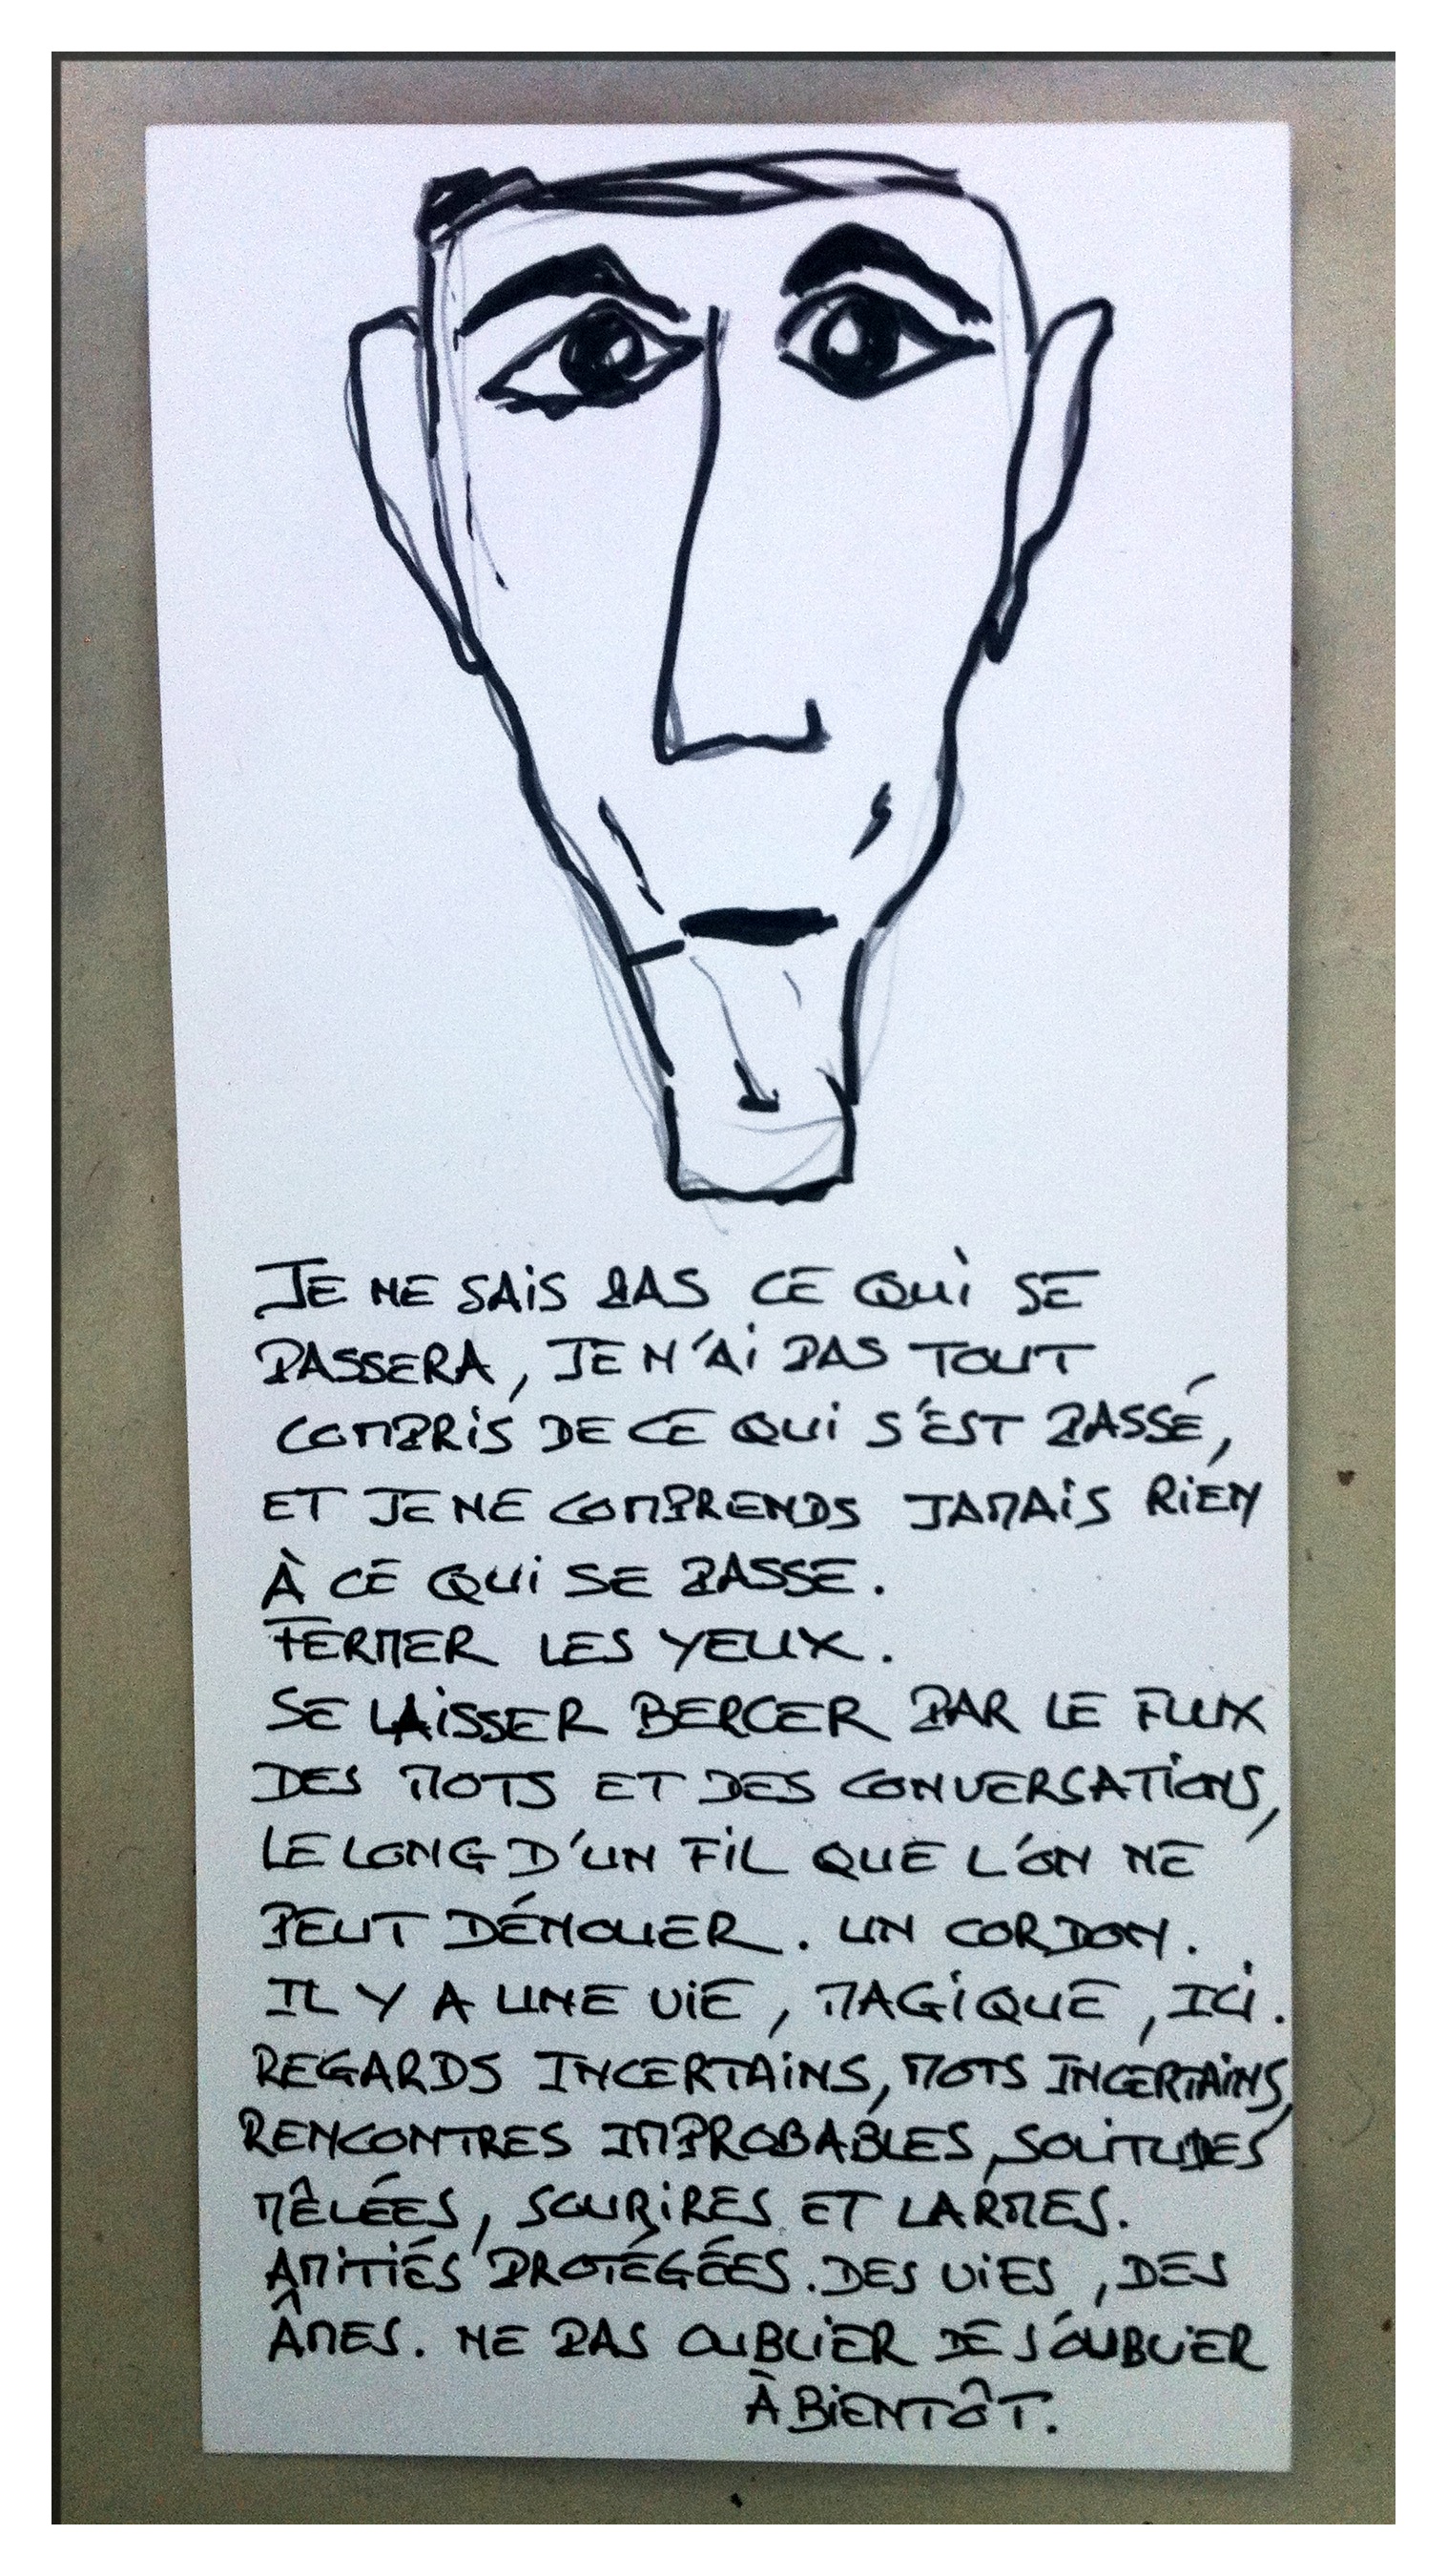 JE NE SAIS PAS CE QUI SE
PASSERA, JE N'AI PAS TOUT
COMPRIS DE CE QUI S'EST PASSÉ,
ET JE NE COMPRENDS JAMAIS RIEN
À CE QUI SE PASSE.
FERMER LES YEUX.
SE LAISSER BERCER PAR LE FLUX
DES MOTS ET DES CONVERSATIONS,
LE LONG D'UN FIL QUE L'ON NE
PEUT DÉNOUER. UN CORDON.
IL Y A UNE VIE, MAGIQUE, ICI.
REGARDS INCERTAINS, MOTS INCERTAINS,
RENCONTRES IMPROBABLES, SOLITUDES
MÊLÉES, SOURIRES ET LARMES.
AMITIÉS PROTÉGÉES. DES VIES, DES
ÂMES. NE PAS OUBLIER DE S'OUBLIER
À BIENTÔT.